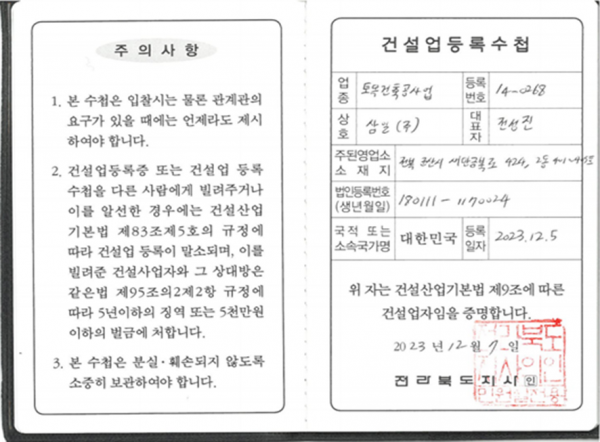 주의사항
1. 본 수첩은 입찰시는 물론 관계관의
요구가 있을 때에는 언제라도 제시
하여야 합니다.
2. 건설업등록증 또는 건설업 등록
수첩을 다른 사람에게 빌려주거나
이를 알선한 경우에는 건설산업
기본법 제83조제5호의 규정에
따라 건설업 등록이 말소되며, 이를
빌려준 건설사업자와 그 상대방은
같은법 제95조의2제2항 규정에
따라 5년이하의 징역 또는 5천만원
이하의 벌금에 처합니다.
3. 본 수첩은 분실·훼손되지 않도록
소중히 보관하여야 합니다.
건설업등록수첩
업종 토목건축공사업 등록번호 14-0268
상호 삼일(주) 대표자 전성진
주된영업소
소재지 전북 군산시 424, 2동
법인등록번호
(생년월일) 180111-1170024
국적 또는
소속국가명 대한민국 등록일자 2023.12.5
위 자는 건설산업기본법 제9조에 따른
건설업자임을 증명합니다.
2023년 12월 7일
전라북도지사 인